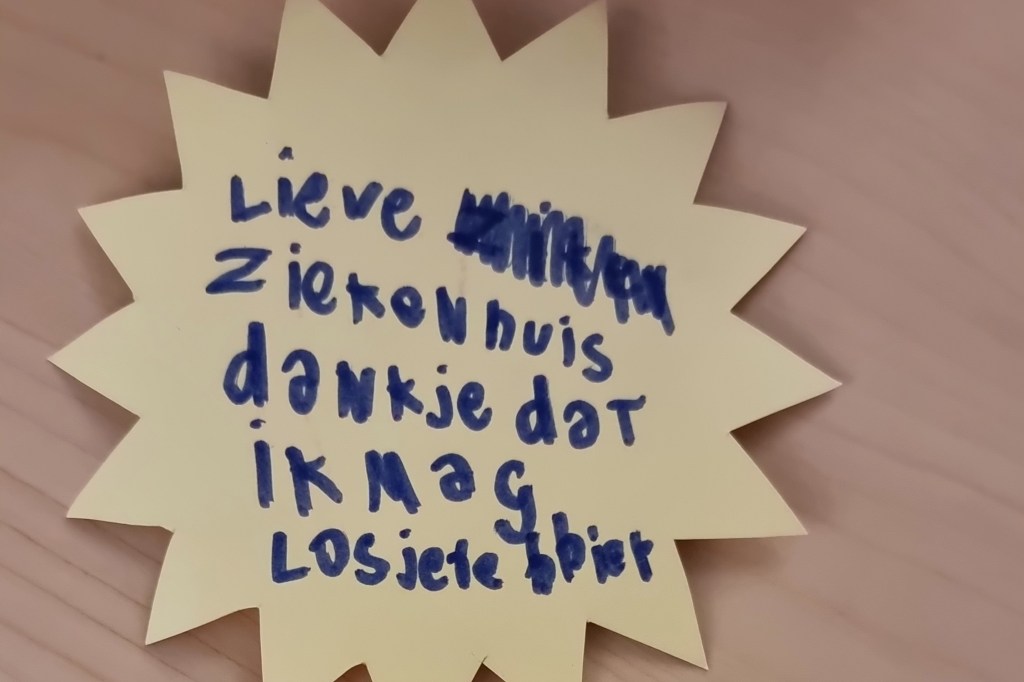 Lieve
ziekenhuis
dankje dat
ik mag
Losjete hier